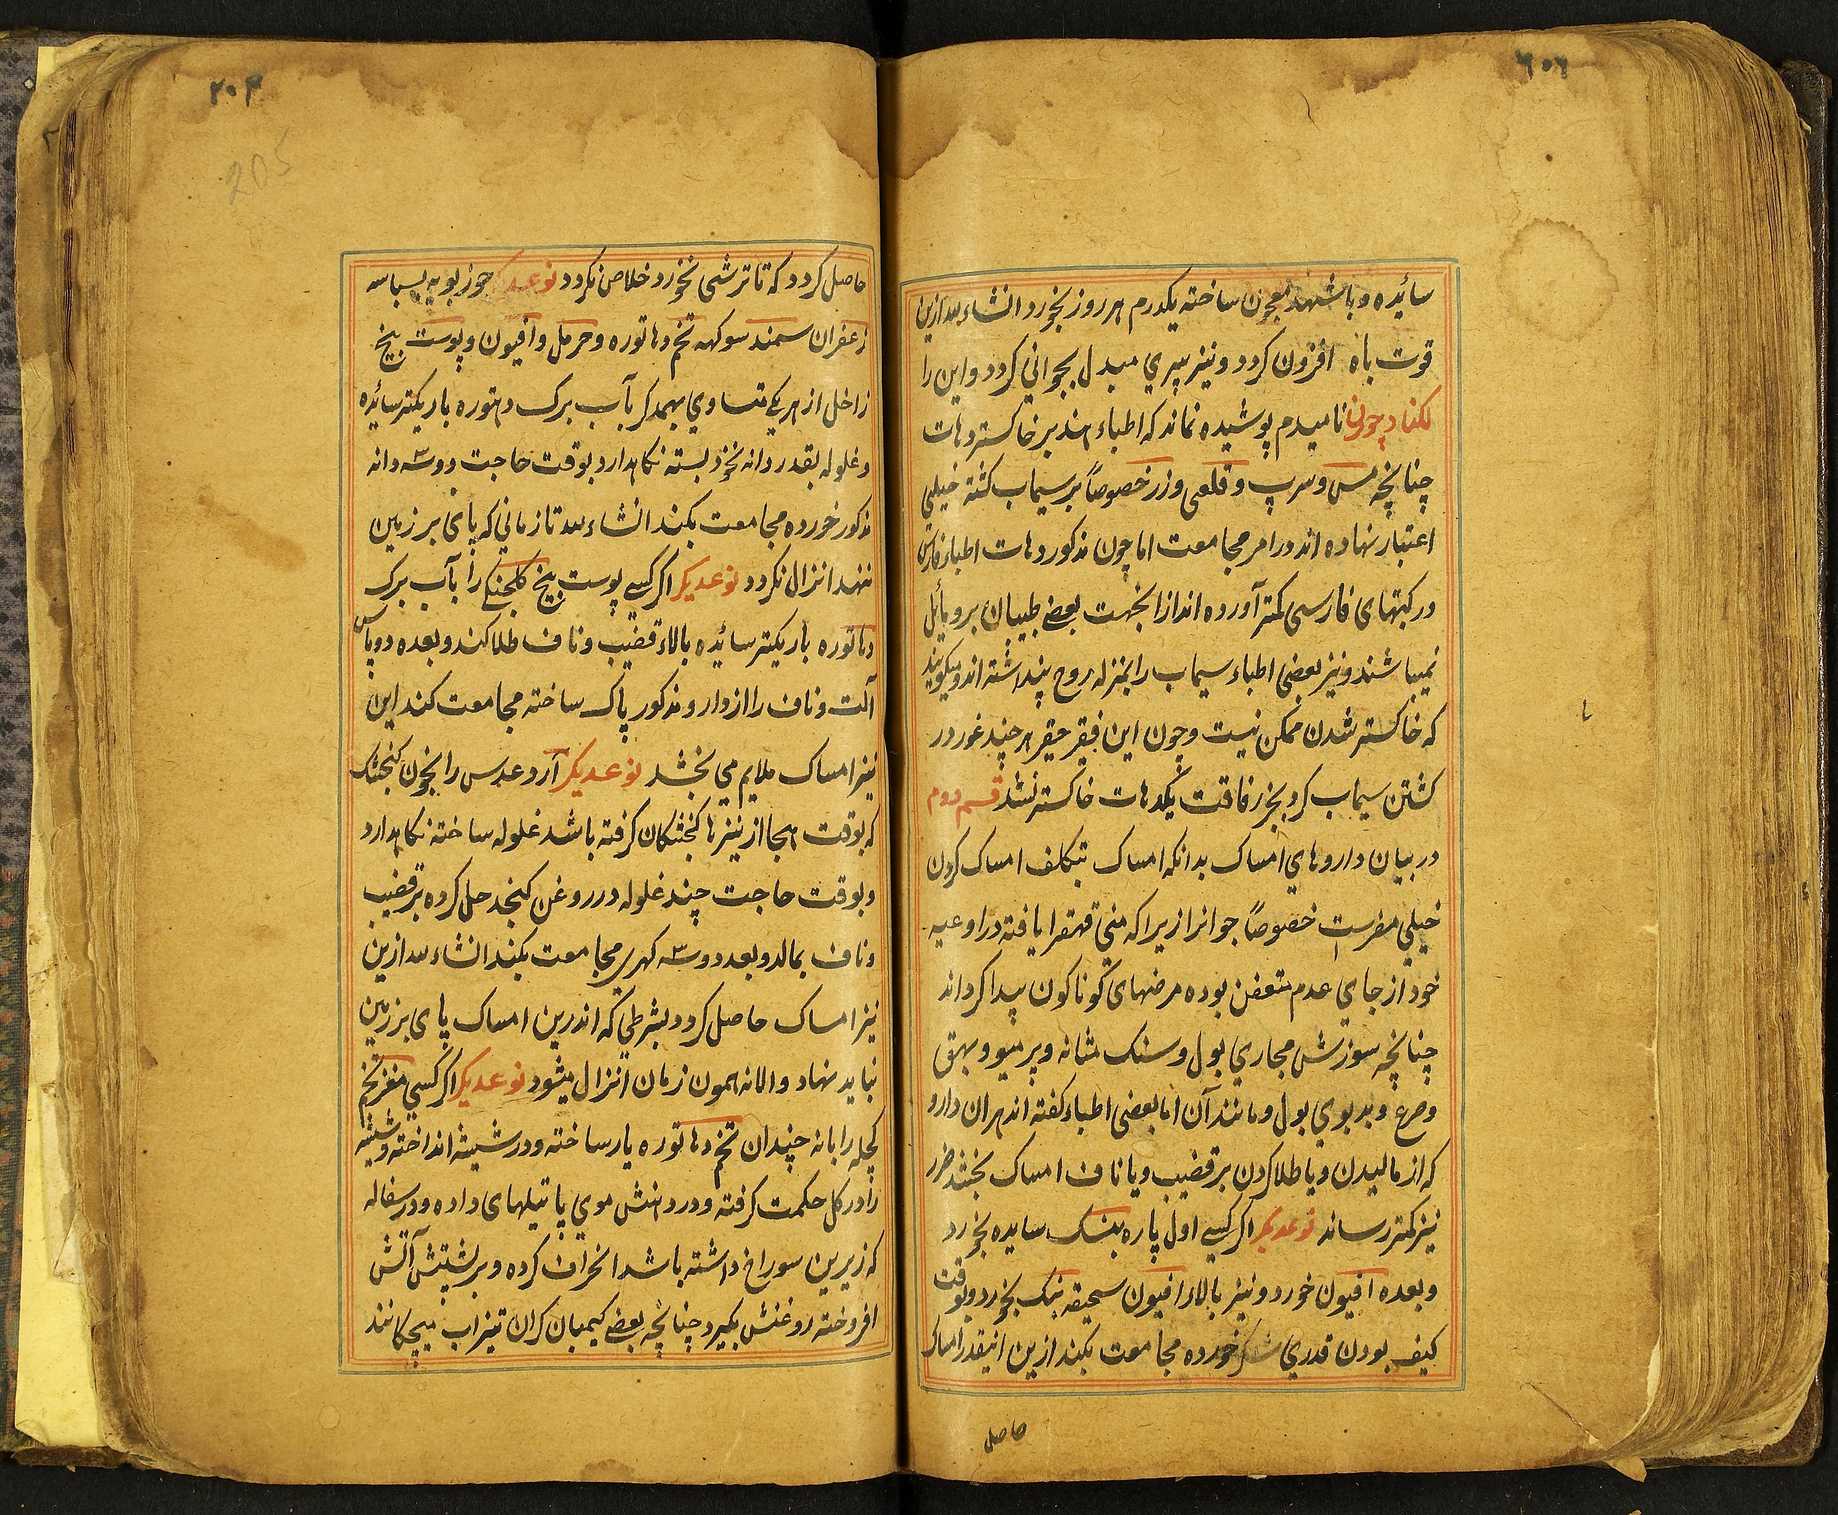 ٢٠٦
سائیده و با شهد معجون ساخته یکدرم هر روز بخورد انشاء الله ازین
قوت باه افزون کردد و نیز پیري مبدل بجواني کردد و این را
نامیدم پوشیده نماند که اطباء هند بر خاکستر دهات
چنانچه مس و سرپ و قلعي و زر خصوصاً بر سیماب کشته خیلي
اعتبار نهاده اند در امر مجامعت اما چون مذکور دهات اطباء فارس
در کتبهای فارسي کمتر آورده اند ازانجهت بعضے طبیبان برو یائل
نمیباشند و نیز بعضی اطباء سیماب را بمنزله روح پنداشته اند و میکویند
که خاکستر شدن ممکن نیست و چون این فقیر حقیر هر چند غور در
کشتن سیماب کرد بجز رفاقت یکدهات خاکستر نشد قسم دوم
در بیان داروهاي امساک بدانکه امساک بتکلف امساک کردن
خیلي مضرست خصوصاً جوانرا زیرا که مني قهقرا یافته در اوعیه
خود از جاي عدم متعفن بوده مرضهای کوناکون پیدا کرداند
چنانچه سوزش مجاري بول و سنک مثانه و پرمیو و بهق
و صرع و بدبوي بول و مانند آن اما بعضی اطباء کفته اند هران دارو
که از مالیدن و یا طلا کردن بر قضیب و یا ناف امساک بخشد ضرر
نیز کمتر رساند نوعدیکر اکر کسے اول پاره بنک سایده بخورد
و بعده افیون خورد و نیز بالاء افیون سحیقه بنک بخورد و بوقت
کیف بودن قدري شکر خورده مجامعت بکند ازین انیقدر امساک
حاصل
٢٠۴
205
حاصل کردد که تا ترشی نخورد خلاص نکردد نوعدیکر جوزبویه بسباسه
زعفران سمندسوکهه تخم دهاتوره و حرمل و افیون و پوست بیخ
زاخل از هر یکے متساوي بهمدکر بآب برک دهتوره باریکتر سائیده
و غلوله بقدر دانه نخود بسته نکاهدارد بوقت حاجت دو سه دانه
مذکور خورده مجامعت بکند انشاء الله تا زماني که پای بر زمین
ننهد انزال نکردد نوعدیکر اکر کسے پوست بیخ را بآب برک
دهاتوره باریکتر سائیده بالاء قضیب و ناف طلا کند و بعده دو پاس
آلت و ناف را از داروء مذکور پاک ساخته مجامعت کند این
نیز امساک ملایم می بخشد نوعدیکر آرد عدس را بخون کنجشک
که بوقت هیجا از نیزها کنجشکان کرفته باشد غلوله ساخته نکاهدارد
و بوقت حاجت چند غلوله در روغن کنجد حل کرده بر قضیب
و ناف بمالد و بعد دو سه کهري مجامعت بکند انشاء الله ازین
نیز امساک حاصل کردد بشرطی که اندرین امساک پای بر زمین
نباید نهاد والا نه همون زمان انزال میشود نوعدیکر اکر کسي مغز تخم
کچله را بانه چندان تخم دهاتوره یار ساخته و در شیشه انداخته و شیشه
را در کل حکمت کرفته و در دهنش موي یا تیلهای داده و در سفاله
که زیرین سوراخ داشته باشد انحراف کرده و بر پشتیش آتش
افروخته روغنش بکیرد چنانچه بعضے کیمیان کران تیزاب میچکانند